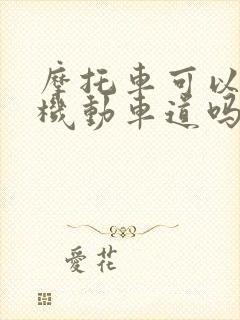 摩托車可以
機動車道嗎
愛花